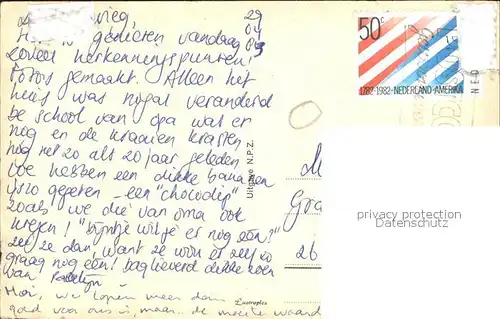 29
04
genieten vandaag
zoveel herkenningspunten!
Foto's gemaakt. Alleen het
huis was nogal veranderd
De school van opa wat er
nog en de kraaien krasten
nog net zo als 20 jaar geleden
We hebben een dikke bananen
ijsco gegeten - een "chocodip"
zoals we die van oma ook
kregen! wil je er nog één?"
zei ze dan, want ze wou er zelf zo
graag nog één! Dag lieverd dikke zoen
van
Hoi, we lopen meer dan
goed voor ons is, maar... de moeite waard
Uitgave N.P.Z.
Luxtroplex
50c
1782-1982-NEDERLAND-AMERIKA
NED
M
Gra
26
privacy protection
Datenschutz